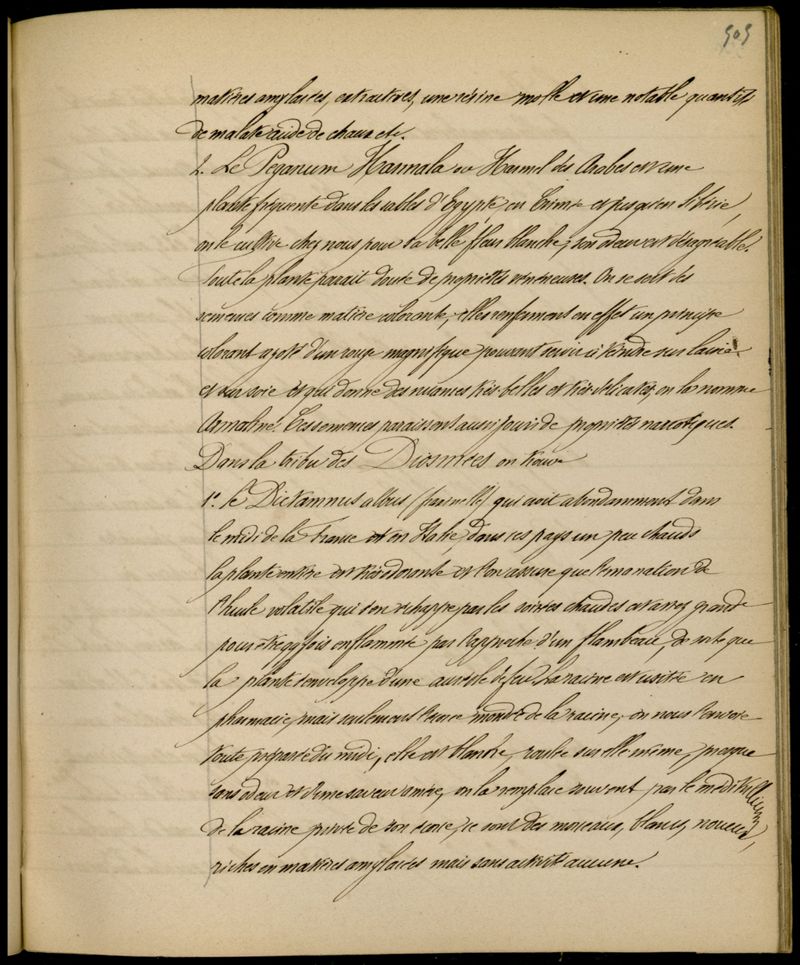 505
matières amylacées, extractives, une résine molle et une notable quantité
de malate acide de chaux etc.
2. Le Peganum Harmala ou Harmel des Arabes est une
plante fréquente dans les sables d'Egypte, en Crimée et jusqu'en Sibérie,
on le cultive chez nous pour sa belle fleur blanche; son odeur est désagréable.
Toute la plante parait douée de propriétés vénéneuses. On se sert des
semences comme matière colorante, elles renferment en effet un principe
colorant azoté d'un rouge magnifique pouvant servir à teindre sur laine
et sur soie et qui donne des nuances très belles et très délicates, on la nomme
Armaline. Ces semences paraissent aussi jouir de propriétés narcotiques.
Dans la tribu des Diosmées on trouve
1° le Dictamnus albus (fraxinelle) qui croit abondamment dans
le midi de la France et en Italie, dans ces pays un peu chauds
la plante entière est très odorante et l'on assure que l'émanation de
l'huile volatile qui s'en échappe par les soirées chaudes est assez grande
pour être qq fois enflammée par l'approche d'un flambeau, de sorte que
la plante s'enveloppe d'une auréole de feu. La racine est usitée en
pharmacie, mais seulement l'écorce mondée de la racine, on nous l'envoie
toute préparée du midi, elle est blanche, roulée sur elle même, presque
sans odeur et d'une saveur amère, on la remplace souvent par le meditullium
de la racine privée de son écorce, ce sont des morceaux, blancs, noueux,
riches en matières amylacées mais sans activité aucune.